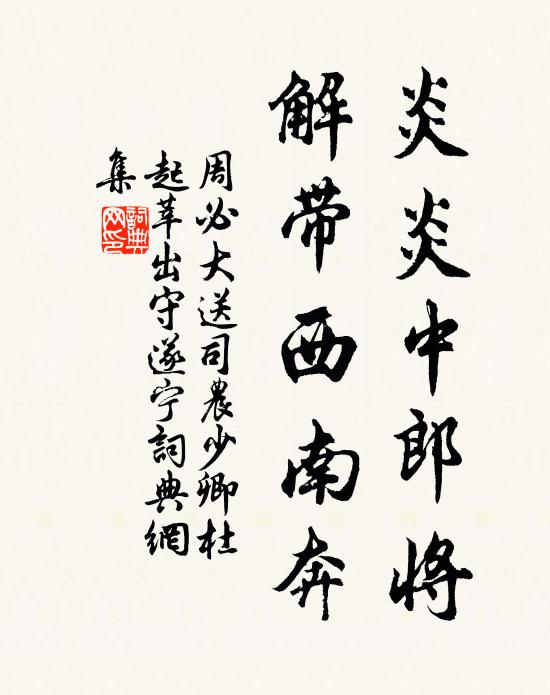 炎炎中郎将
解带西南奔
周必大送司農少卿杜
起莘出守遂宁詞典網
集
詞典
网印